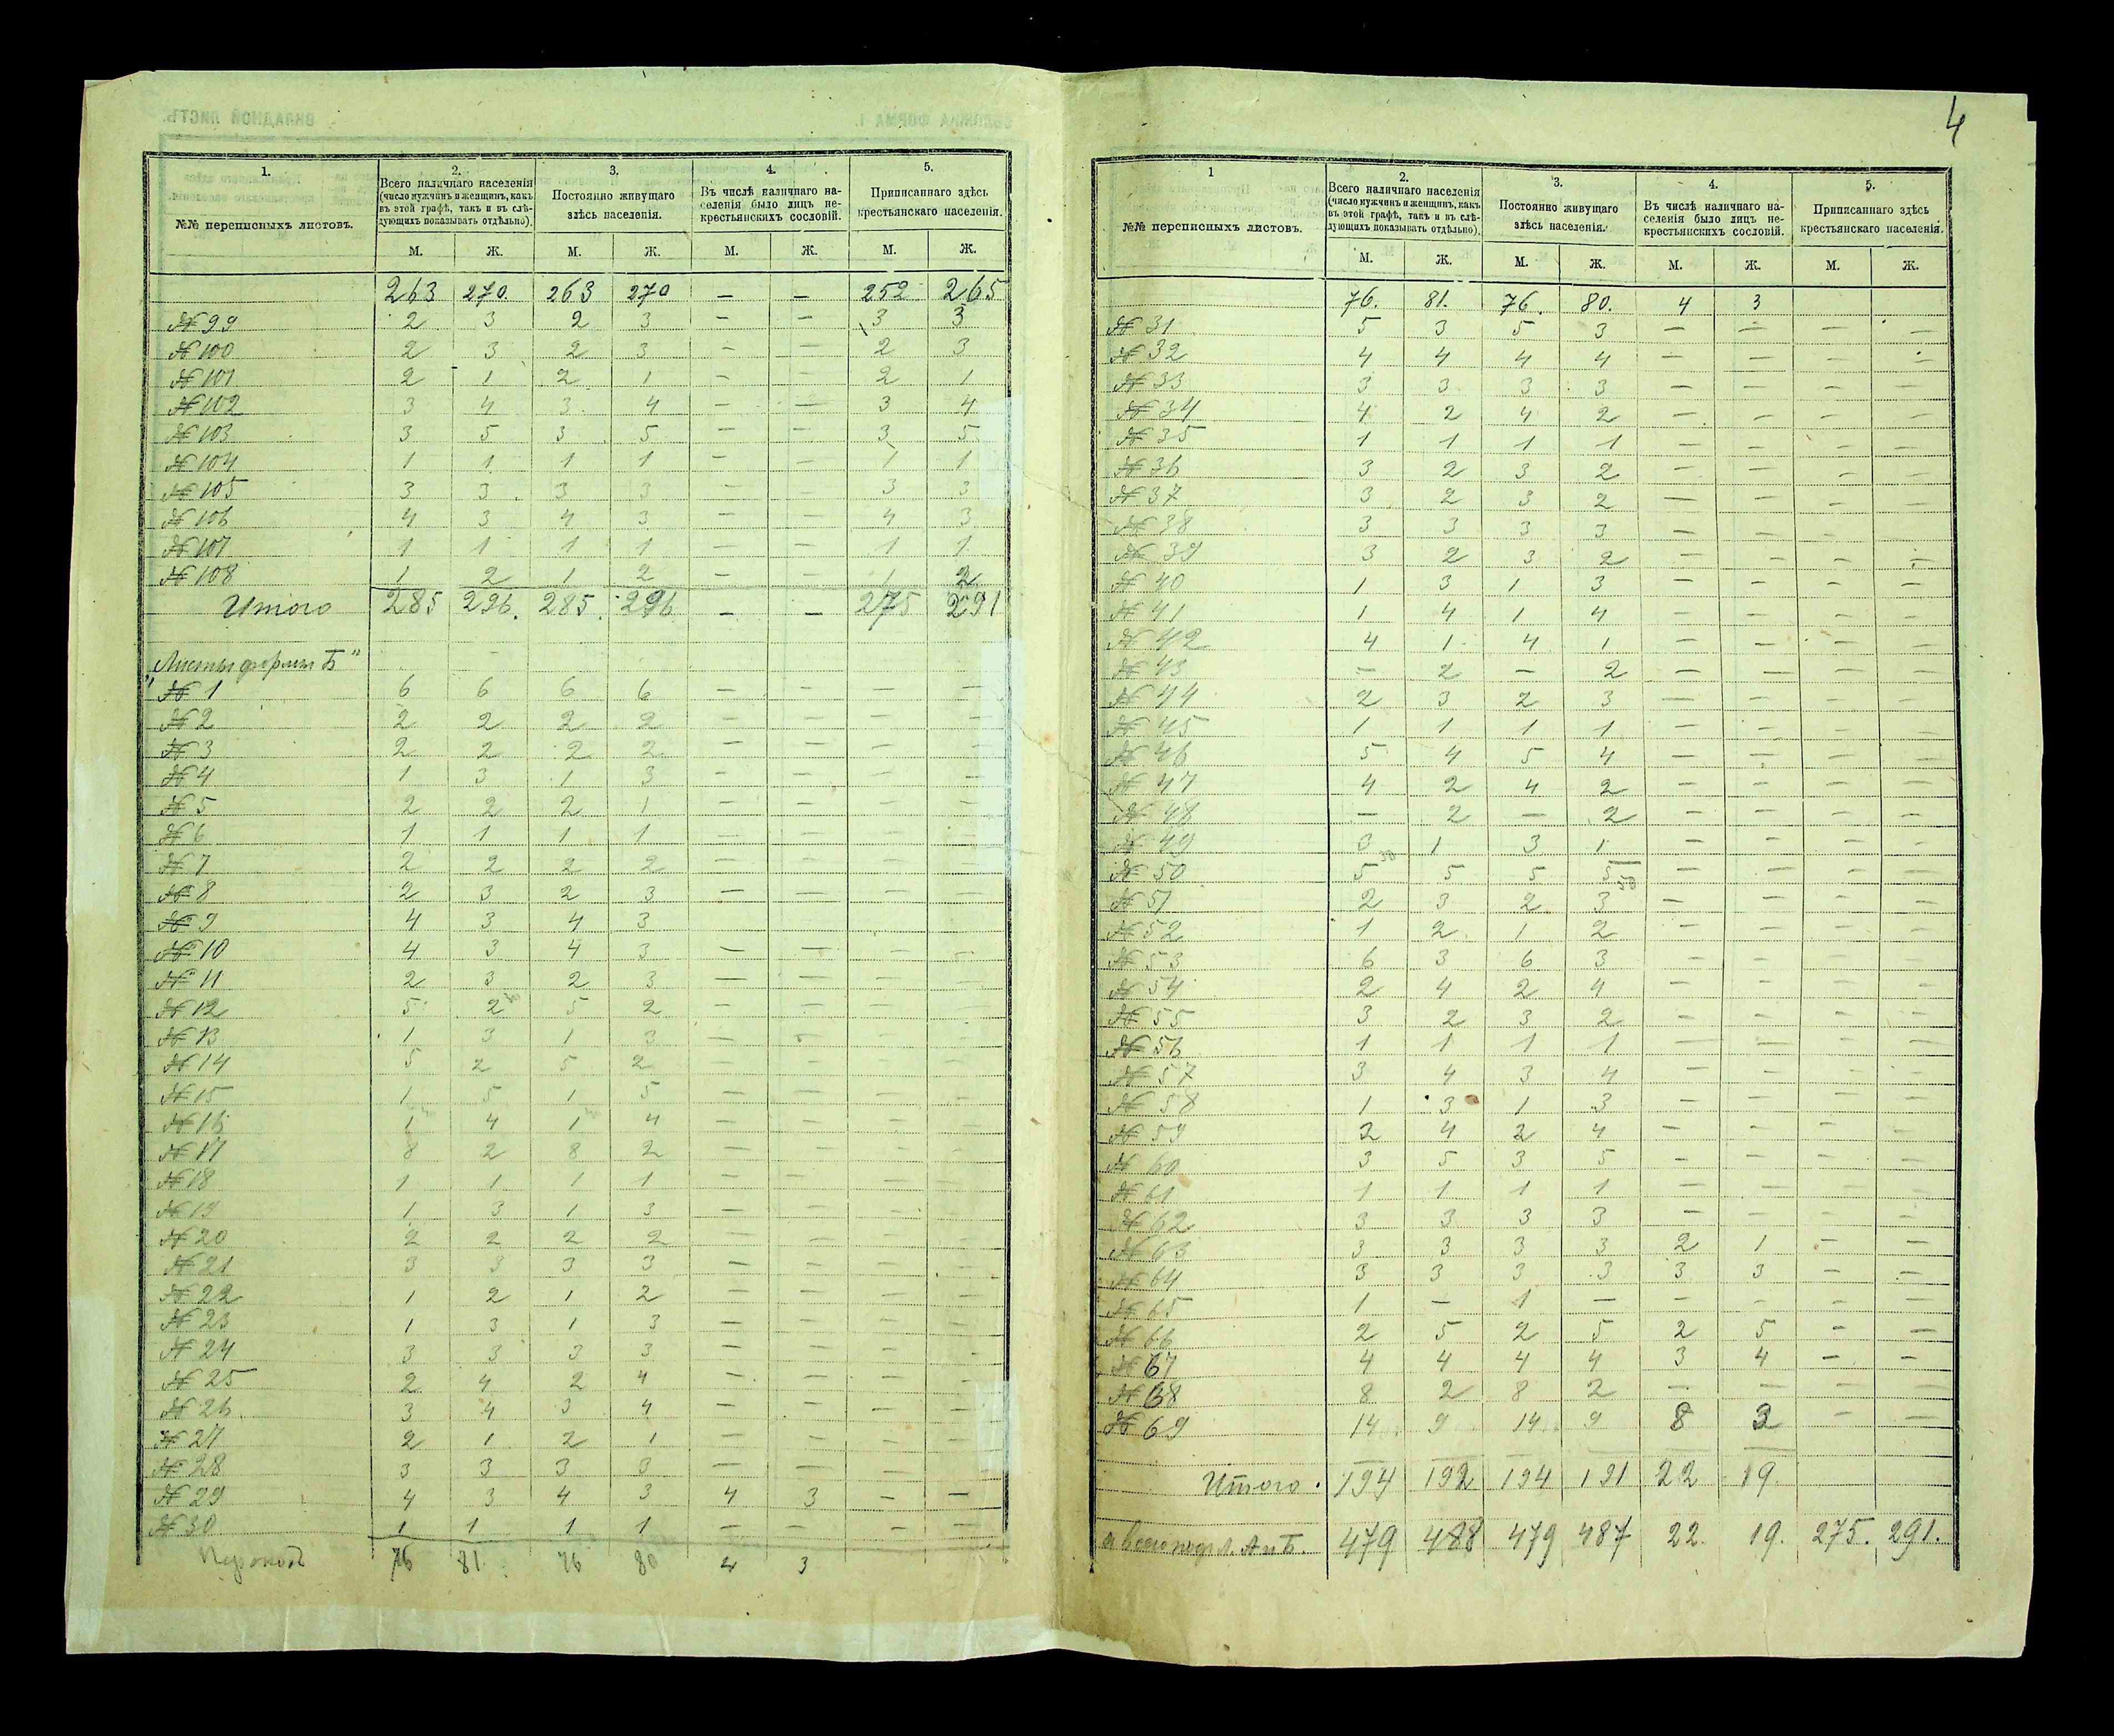 4
1. 2. 3. 4. 5.
№№ переписныхъ листовъ. Всего наличнаго населенія (число мужчинъ и женщинъ, какъ въ этой графѣ, такъ и въ слѣдующихъ показывать отдѣльно). Постоянно живущаго здѣсь населенія. Въ числѣ наличнаго населенія было лицъ некрестьянскихъ сословій. Приписаннаго здѣсь крестьянскаго населенія.
М. Ж. М. Ж. М. Ж. М. Ж.
263 270. 263 270 — — 252 265
№ 99 2 3 2 3 — — 3 3
№ 100 2 3 2 3 — — 2 3
№ 101 2 1 2 1 — — 2 1
№ 102 3 4 3 4 — — 3 4
№ 103 3 5 3 5 — — 3 5
№ 104 1 1 1 1 — — 1 1
№ 105 3 3 3 3 — — 3 3
№ 106 4 3 4 3 — — 4 3
№ 107 1 1 1 1 — — 1 1
№ 108 1 2 1 2 — — 1 2
Итого 285 296. 285. 296 — — 275 291
„Листы формы Б"
№ 1 6 6 6 6 — — — —
№ 2 2 2 2 2 — — — —
№ 3 2 2 2 2 — — — —
№ 4 1 3 1 3 — — — —
№ 5 2 2 2 1 — — — —
№ 6 1 1 1 1 — — — —
№ 7 2 2 2 2 — — — —
№ 8 2 3 2 3 — — — —
№ 9 4 3 4 3
№ 10 4 3 4 3 — — — —
№ 11 2 3 2 3 — — — —
№ 12 5 2 5 2 — — — —
№ 13 1 3 1 3 — — — —
№ 14 5 2 5 2 — — — —
№ 15 1 5 1 5 — — — —
№ 16 1 4 1 4 — — — —
№ 17 8 2 8 2 — — — —
№ 18 1 1 1 1 — — — —
№ 19 1 3 1 3 — — — —
№ 20 2 2 2 2 — — — —
№ 21 3 3 3 3 — — — —
№ 22 1 2 1 2 — — — —
№ 23 1 3 1 3 — — — —
№ 24 3 3 3 3 — — — —
№ 25 2 4 2 4 — — — —
№ 26 3 4 3 4 — — — —
№ 27 2 1 2 1 — — — —
№ 28 3 3 3 3 — — — —
№ 29 4 3 4 3 4 3 — —
№ 30 1 1 1 1 — — — —
76 81 76 80 4 3
1 2. 3. 4. 5.
№№ переписныхъ листовъ. Всего наличнаго населенія (число мужчинъ и женщинъ, какъ въ этой графѣ, такъ и въ слѣдующихъ показывать отдѣльно). Постоянно живущаго здѣсь населенія. Въ числѣ наличнаго населенія было лицъ некрестьянскихъ сословій. Приписаннаго здѣсь крестьянскаго населенія.
М. Ж. М. Ж. М. Ж. М. Ж.
76. 81. 76. 80. 4 3
№ 31 5 3 5 3 — — — —
№ 32 4 4 4 4 — — — —
№ 33 3 3 3 3 — — — —
№ 34 4 2 4 2 — — — —
№ 35 1 1 1 1 — — — —
№ 36 3 2 3 2 — — — —
№ 37 3 2 3 2 — — — —
№ 38 3 3 3 3 — — — —
№ 39 3 2 3 2 — — — —
№ 40 1 3 1 3 — — — —
№ 41 1 4 1 4 — — — —
№ 42 4 1 4 1 — — — —
№ 43 — 2 — 2 — — — —
№ 44 2 3 2 3 — — — —
№ 45 1 1 1 1 — — — —
№ 46 5 4 5 4 — — — —
№ 47 4 2 4 2 — — — —
№ 48 — 2 — 2 — — — —
№ 49 3 1 3 1 — — — —
№ 50 5 5 5 5 — — — —
№ 51 2 3 2 3 — — — —
№ 52 1 2 1 2 — — — —
№ 53 6 3 6 3 — — — —
№ 54 2 4 2 4 — — — —
№ 55 3 2 3 2 — — — —
№ 56 1 1 1 1 — — — —
№ 57 3 4 3 4 — — — —
№ 58 1 3 1 3 — — — —
№ 59 2 4 2 4 — — — —
№ 60 3 5 3 5 — — — —
№ 61 1 1 1 1 — — — —
№ 62 3 3 3 3 — — — —
№ 63 3 3 3 3 2 1 — —
№ 64 3 3 3 3 3 3 — —
№ 65 1 — 1 — — — — —
№ 66 2 5 2 5 2 5 — —
№ 67 4 4 4 4 3 4 — —
№ 68 8 2 8 2 — — — —
№ 69 14 9 14 9 8 3 — —
Итого. 194 192 194 191 22 19.
а всего по ф. л. А и Б. 479 488 479 487 22. 19. 275. 291.